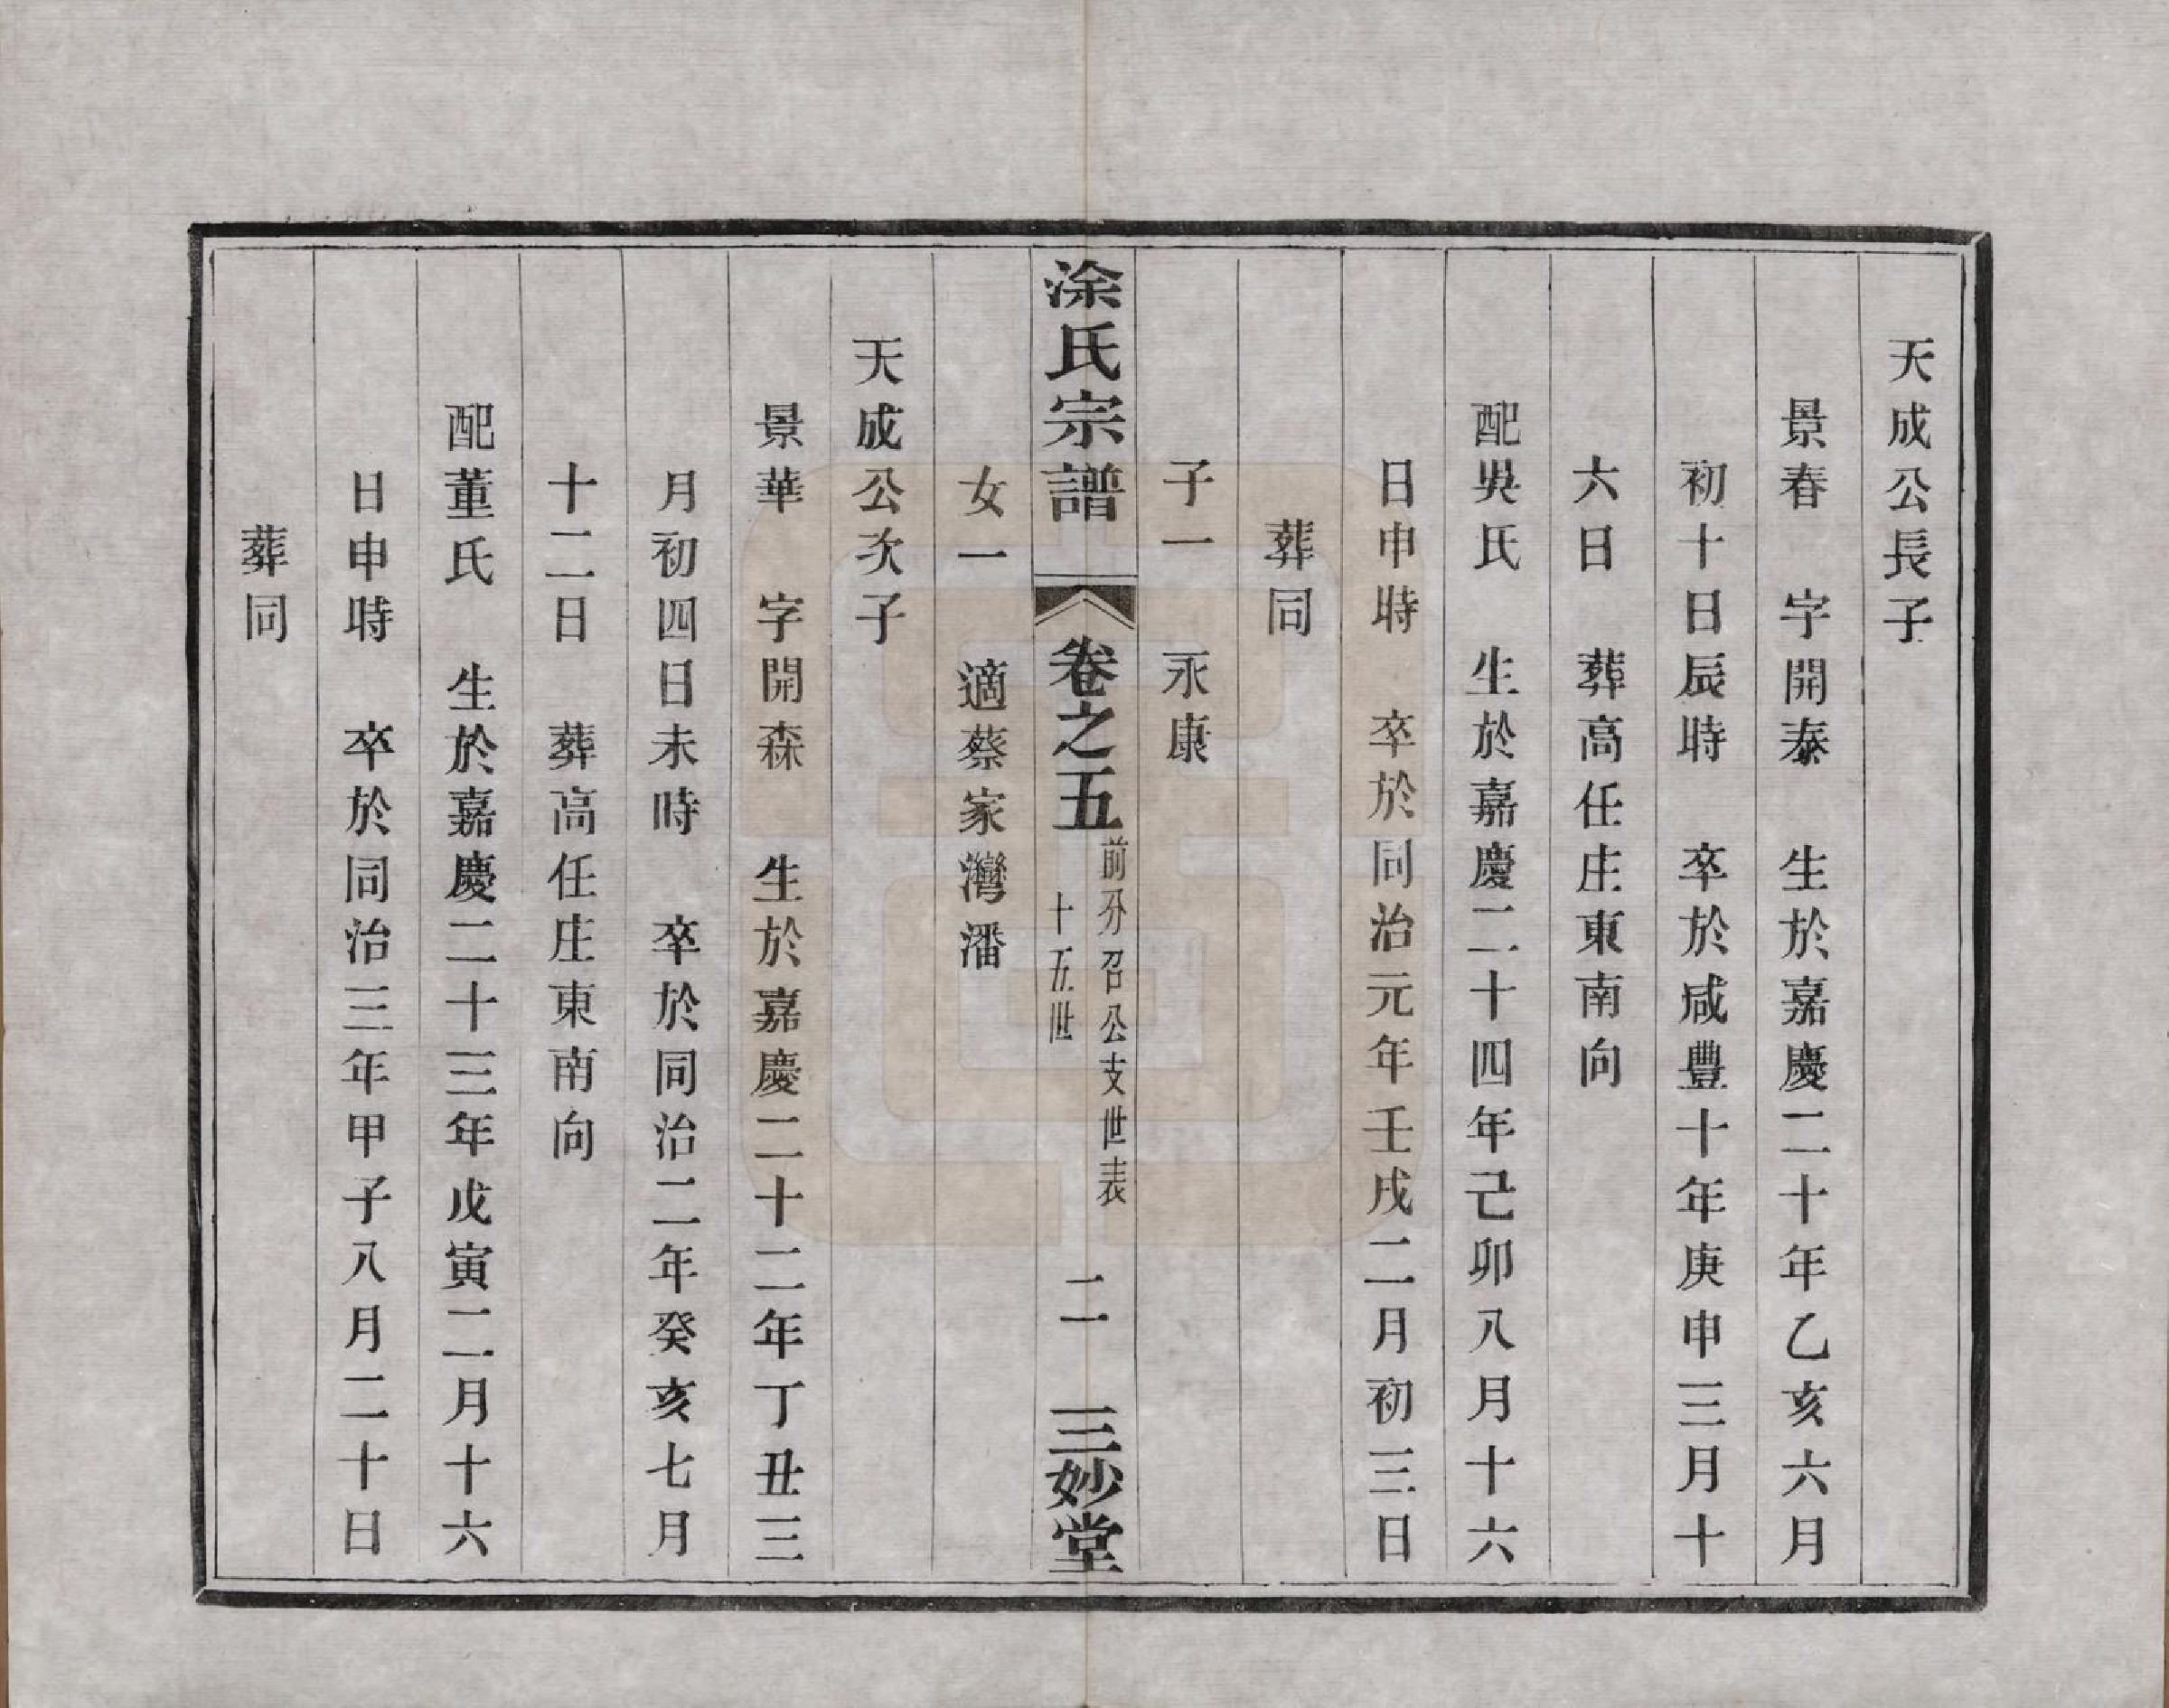 天成公長子
景春　字開泰　生於嘉慶二十年乙亥六月
初十日辰時　卒於咸豐十年庚申三月十
六日　葬高任庄東南向
配吳氏　生於嘉慶二十四年己卯八月十六
日申時　卒於同治元年壬戌二月初三日
葬同
子一　永康
涂氏宗譜　卷之五　前分召公支世表
十五世
二　三妙堂
女一　適蔡家灣潘
天成公次子
景華　字開森　生於嘉慶二十二年丁丑三
月初四日未時　卒於同治二年癸亥七月
十二日　葬高任庄東南向
配董氏　生於嘉慶二十三年戊寅二月十六
日申時　卒於同治三年甲子八月二十日
葬同